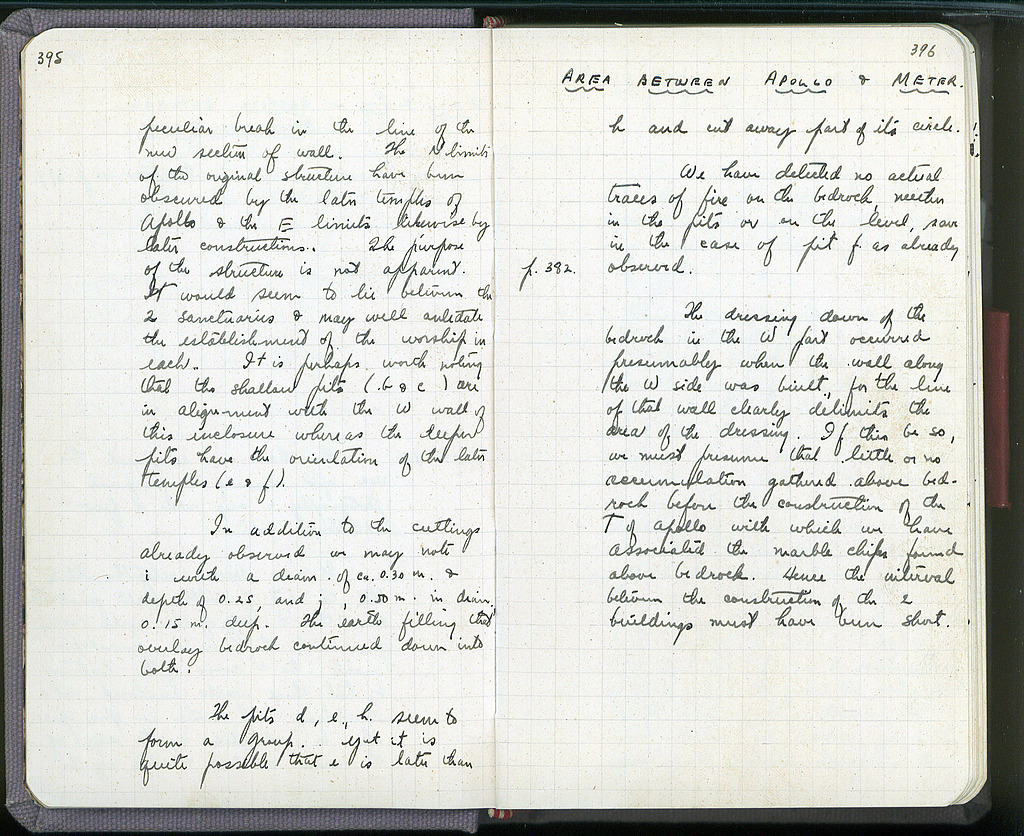 395
peculiar break in the line of the
new section of wall. The N limits
of the original structure have been
obscured by the later temples of
Apollo & the E limits likewise by
later constructions. The purpose
of the structure is not apparent.
It would seem to lie between the
2 sanctuaries & may well antedate
the establishment of the worship in
each. It is perhaps worth noting
that the shallow pits (b & c) are
in alignment with the W wall of
this inclosure whereas the deeper
pits have the orientation of the later
temples (e & f).
In addition to the cuttings
already observed we may note
i with a diam. of ca. 0.30 m. &
depth of 0.25, and j, 0.50 m. in diam,
0.15 m. deep. The earth filling that
overlay bedrock continued down into
both.
The pits d, e, h. seem to
form a group. yet it is
quite possible that e is later than
396
AREA BETWEEN APOLLO & METER.
h and cut away part of its circle.
We have detected no actual
traces of fire on the bedrock, neither
in the pits or on the level, save
in the case of pit f as already
p. 382. observed.
The dressing down of the
bedrock in the W part occurred
presumably when the wall along
the W side was built, for the line
of that wall clearly delimits the
area of the dressing. If this be so,
we must presume that little or no
accumulation gathered above bed-
rock before the construction of the
T of Apollo with which we have
associated the marble chips found
above bedrock. Hence the interval
between the construction of the 2
buildings must have been short.